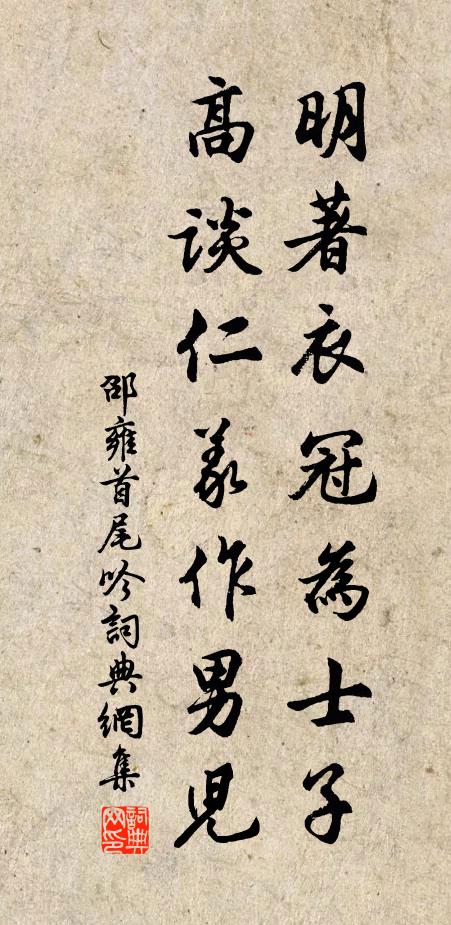 明著衣冠為士子
高談仁義作男児
邵雍首尾吟詞典網集
詞典网印